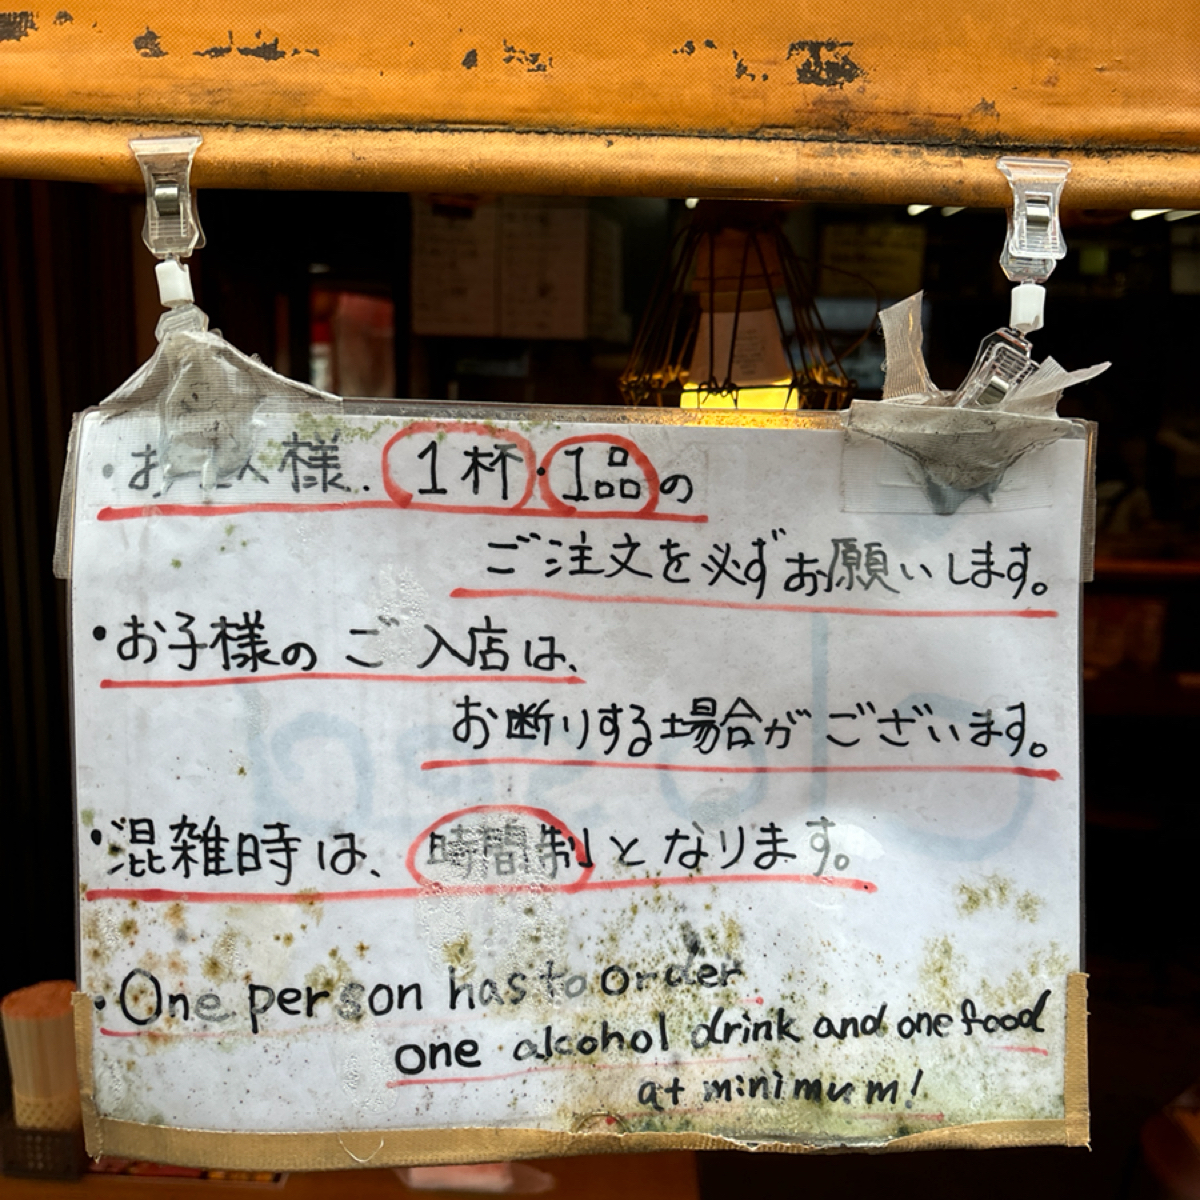 ・お一人様、1杯・1品の
ご注文を必ずお願いします。
・お子様のご入店は、
お断りする場合がございます。
・混雑時は、時間制となります。
・One person has to order
one alcohol drink and one food
at minimum!